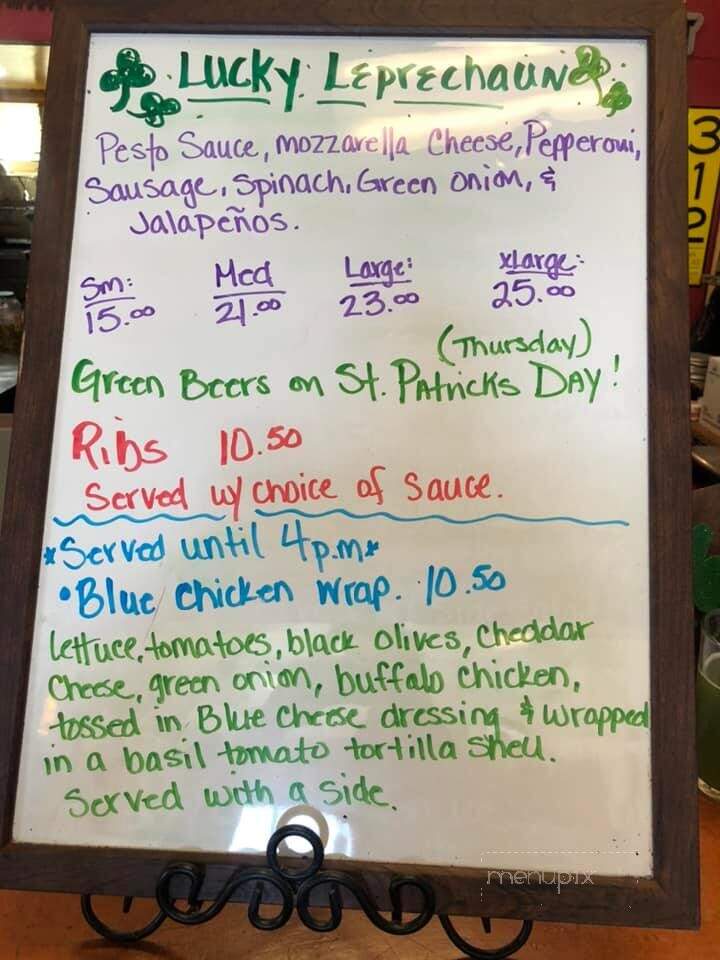 Lucky Leprechaun
Pesto Sauce, mozzarella Cheese, Pepperoni,
Sausage, Spinach, Green onion, &
Jalapeños.
Sm: Med Large: xLarge:
15.00 21.00 23.00 25.00
(Thursday)
Green Beers on St. Patricks Day!
Ribs 10.50
Served w/ choice of sauce.
*Served until 4p.m*
•Blue chicken wrap. 10.50
lettuce, tomatoes, black olives, cheddar
cheese, green onion, buffalo chicken,
tossed in Blue cheese dressing & wrapped
in a basil tomato tortilla shell.
Served with a side.
3
1
2
menupix